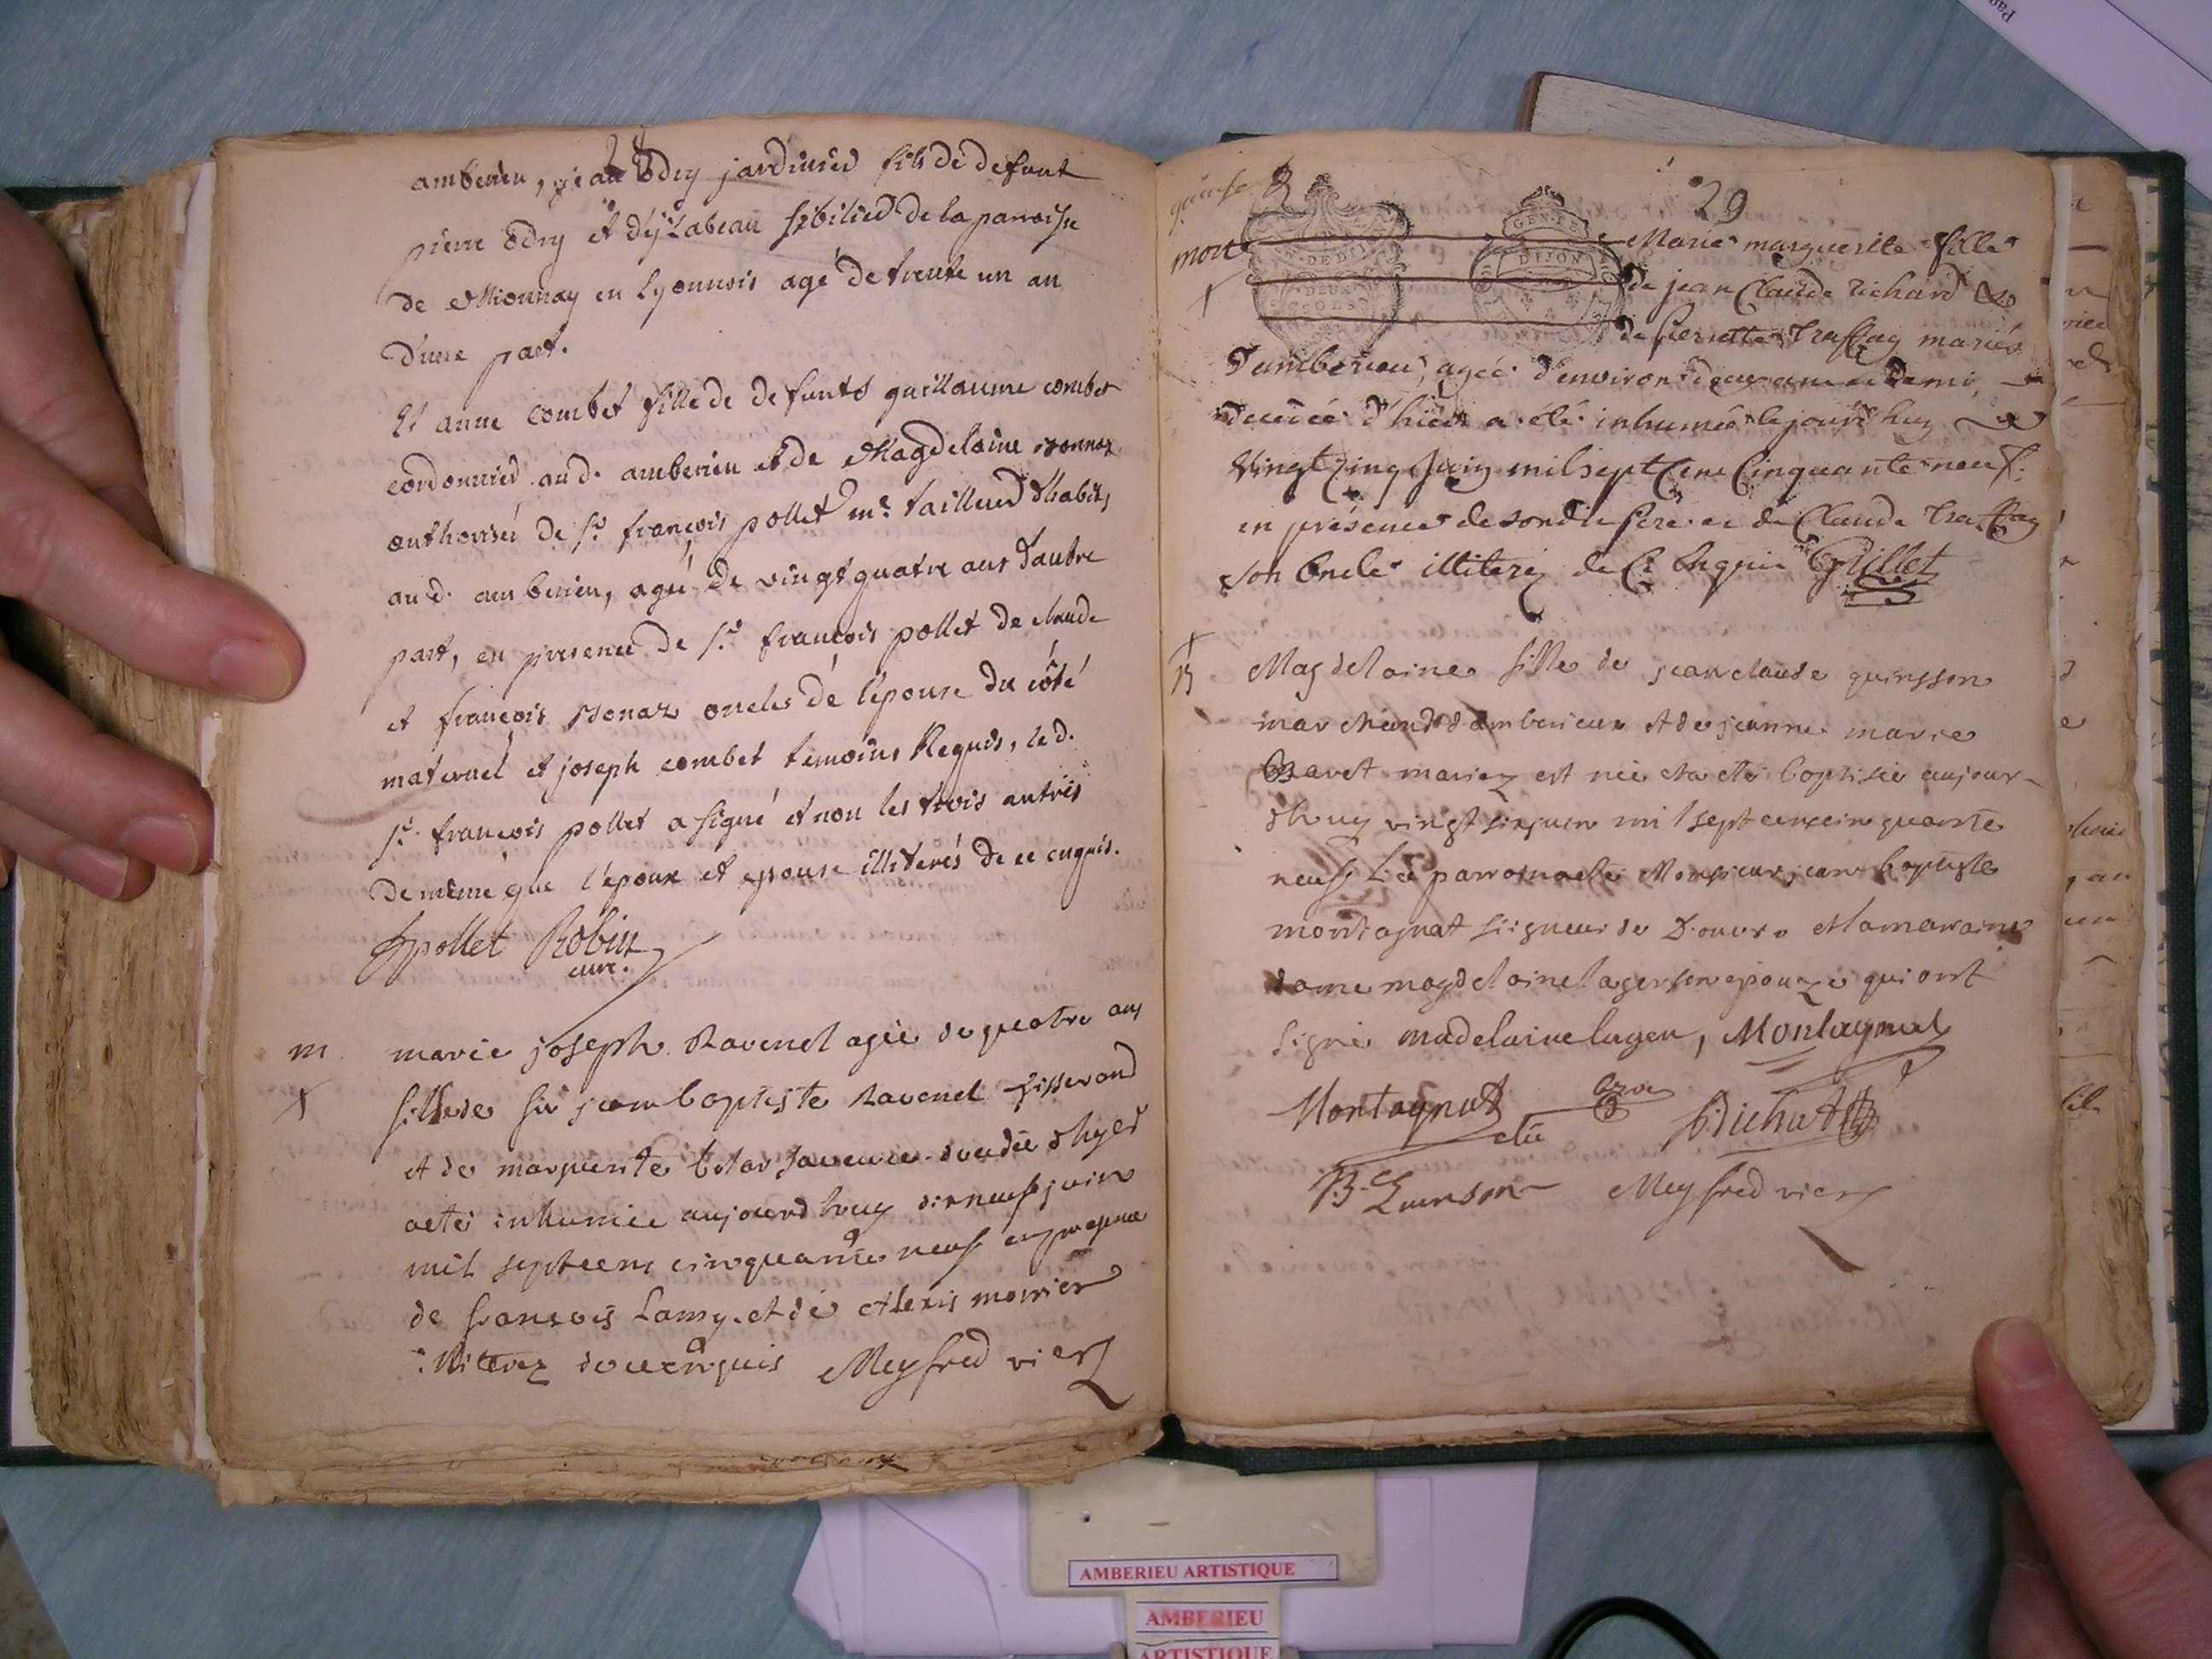 28
amberieu, jean Odry jardinier fils de defunt
pierre Odry et d'yzabeau sibilier de la parroisse
de Mionnay en Lyonnois agé de trente un an
d'une part.
Et anne combet fille de defunts guillaume combet
cordonnier aud. amberieu et de Magdelaine
authorisée de Sr. françois pollet me. tailleur d'habits
aud. amberieu, agée de vingt quatre ans d'autre
part, en presence de Sr. françois pollet de claude
et françois oncles de l'epouse du côté
maternel et joseph combet temoins Requis, led.
Sr. françois pollet a signé et non les trois autres
de même que l'epoux et epouse illiterés de ce enquis.
fpollet Robin
curé.
m
marie joseph Ravenel agée de quatre ans
fille de jean baptiste Ravenel tisserand
et de marguerite decedée d'hyer
aeté inhumée aujourd huy dixneuf juin
mil septcent cinquante neuf en presence
de françois Lamy et de Alexis monier
illiterez de ce enquis Meyfred vier
quinse
29
GEN.E
DIJON
DEUX
mort
Marie marguerite fille
de jean Claude Richard &
de pierrette Traffay mariés
d'amberieu, agée d'environ deux ans et demi,
decedée d'hier a été inhumée le jourd'huy
vingt cinq juin mil sept cent cinquante neuf.
en présence de sondit pere et de Claude Traffay
son oncle illiterez de ce enquis Grillet
B
Magdelaine fille de jean claude quinsson
marchand d'amberieux et de jeanne marie
mariez est née et a eté baptisée aujour-
dhuy vingt six juin mil sept cent cinquante
neuf Le parrain a eté Monsieur jean baptiste
montagnat seigneur de Douvre et la maraine
dame magdelaine lager son epouze qui ont
signé madelaine lager, Montagnat
Montagnat
Meyfred vier
AMBERIEU ARTISTIQUE
AMBERIEU
ARTISTIQUE